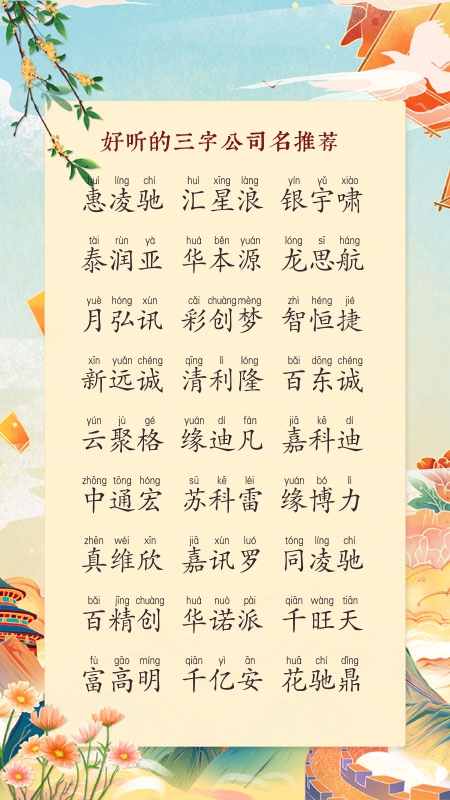 好听的三字公司名推荐
huì líng chí huì xīng làng yín yǔ xiào
惠凌驰 汇星浪 银宇啸
tài rùn yà huá běn yuán lóng sī háng
泰润亚 华本源 龙思航
yuè hóng xùn cǎi chuàng mèng zhì héng jié
月弘讯 彩创梦 智恒捷
xīn yuǎn chéng qīng lì lóng bǎi dōng chéng
新远诚 清利隆 百东诚
yún jù gé yuán dí fán jiā kē dí
云聚格 缘迪凡 嘉科迪
zhōng tōng hóng sū kē léi yuán bó lì
中通宏 苏科雷 缘博力
zhēn wéi xīn jiā xùn luó tóng líng chí
真维欣 嘉讯罗 同凌驰
bǎi jīng chuàng huá nuò pài qiān wàng tiān
百精创 华诺派 千旺天
fù gāo míng qiān yì ān huā chí dǐng
富高明 千亿安 花驰鼎